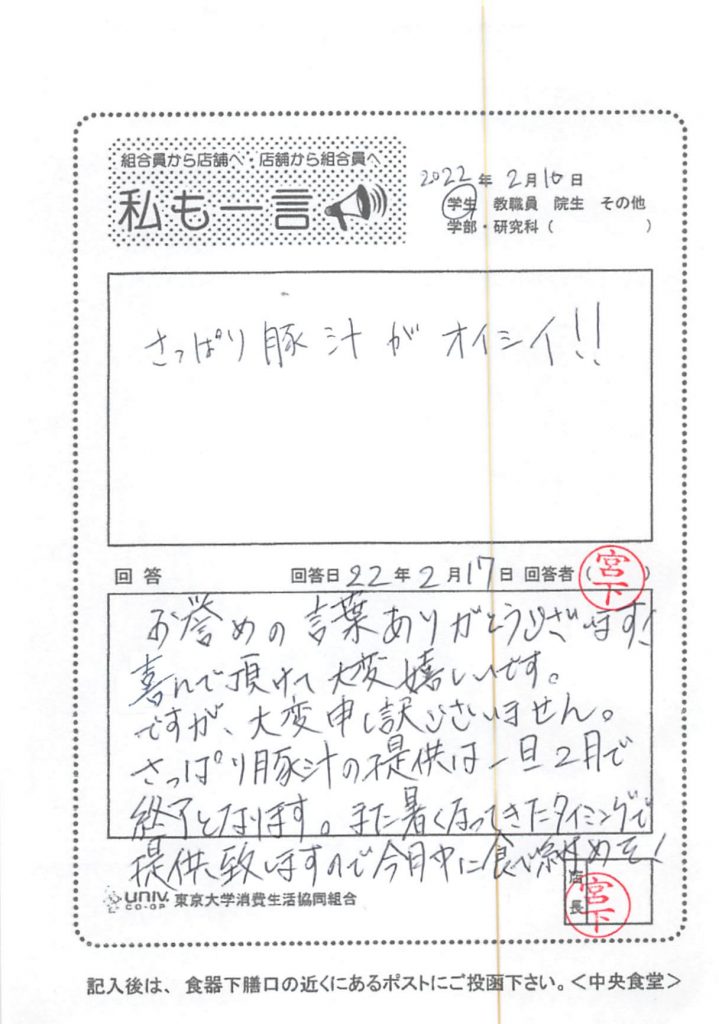 組合員から店舗へ・店舗から組合員へ
私も一言
2022年 2月10日
学生 教職員 院生 その他
学部・研究科（ ）
さっぱり豚汁が オイシイ!!
回答 回答日22年2月17日 回答者（宮下）
お誉めの言葉ありがとうございます!
喜んで頂けて大変嬉しいです。
ですが、大変申し訳ございません。
さっぱり豚汁の提供は一旦2月で
終了となります。また暑くなってきたタイミングで
提供致しますので今月中に食べ納めを!
店長 宮下
UNIV. CO-OP 東京大学消費生活協同組合
記入後は、食器下膳口の近くにあるポストにご投函下さい。＜中央食堂＞